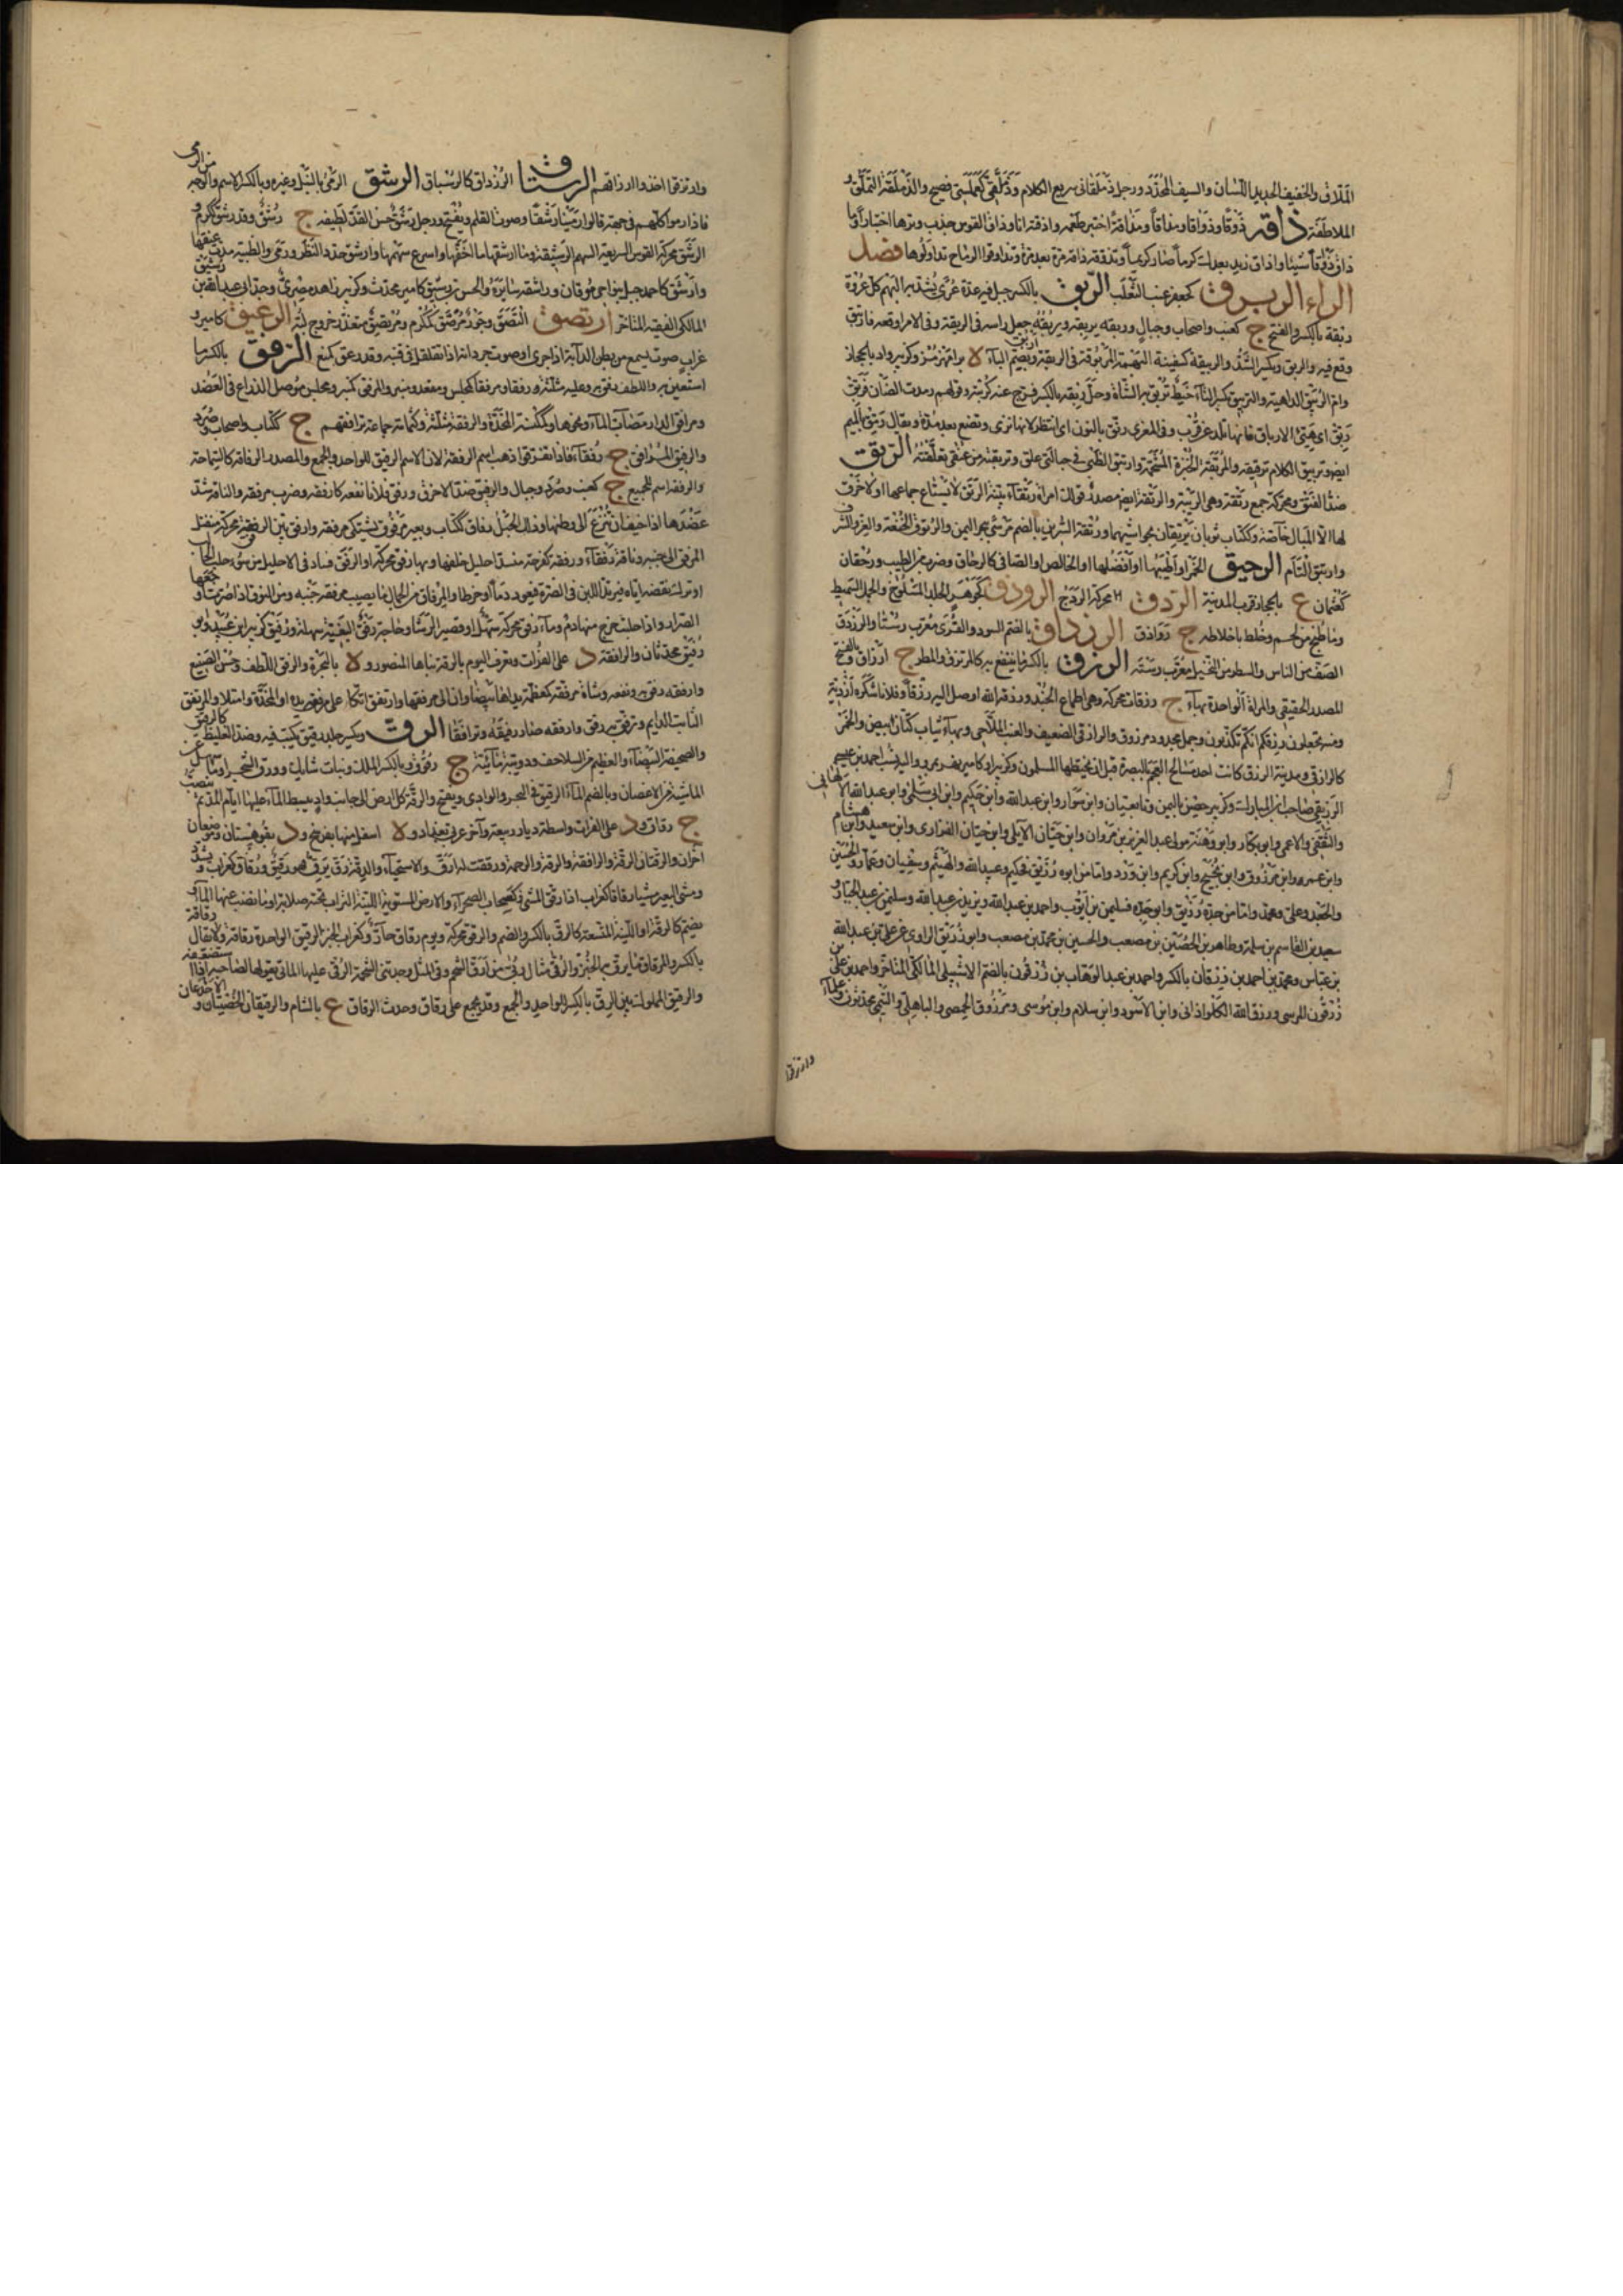 الملاق والخفيف الحديد اللسان والسيف المحدد ورجل ذملقاني سريع الكلام وذملقي كعملسي فصيح والذملقة التملق و
الملاطفة ذاقه ذوقا وذواقا ومذاقا ومذاقة اختبر طعمه واذقته انا وذاق القوس جذب وترها اختبارا وما
ذاق ذواقا شيئا واذاق زيد بعدك كرما صار كريما وتذوقه ذاقه مرة بعد مرة وتذاوقوا الرماح تداولوها فصل
الراء الربرق كجعفر عنب الثعلب الربق بالكسر حبل فيه عدة عرى يشد به البهم كل عروة
ربقة بالكسر والفتح ج كعنب واصحاب وجبال وربقه يربقه ويربقه جعل راسه في الربقة وفي الامر اوقعه فارتبق
وقع فيه والربق ويكسر الشد والربيقة كسفينة البهمة المربوقة في الربقة
وام الربيق الداهية والتربيق بكسر التاء خيط تربق به الشاة وحل ربقته بالكسر فرج عنه كربته وقولهم رمدت الضان فربق
ربق اي هيئ الارباق فانها تلد عن قرب وفي المعزى رنق بالنون اي انتظر لانها ترئي وتضع بعد مدة ويقال رمق بالميم
ايضا وتربيق الكلام ترقيقه والمربقة الخبزة المشحمة وارتبق الظبي في حبالتي علق وتربقته من عنقي تعلقته الرتق
ضد الفتق ومحركة جمع رتقة وهي الرتبة والرتقة ايضا مصدر قولك امراة رتقاء بينة الرتق لا يستطاع جماعها او لا خرق
لها الا المبال خاصة وككتاب ثوبان يرتقان بحواشيهما ورتقة السرين بالضم مرسى ببحر اليمن والرتوق الخنعة والعز والشرف
وارتتق التأم الرحيق الخمر او اطيبها او افضلها او الخالص او الصافي كالرحاق وضرب من الطيب ورحقان
كعثمان ع بالحجاز قرب المدينة الردق محركة الردج الروذق كجوهر الجلد المسلوخ والحمل السميط
وما طبخ من لحم وخلط باخلاطه ج رواذق الرزداق بالضم السود والقرى معرب رستا والرزدق
الصف من الناس والسطر من النخيل معرب رسته الرزق بالكسر ما ينتفع به كالمرتزق والمطر ج ارزاق وبالفتح
المصدر الحقيقي والمراة الواحدة بهاء ج رزقات محركة وهي اطماع الجند ورزقه الله اوصل اليه رزقا وفلانا شكره ازدية
ومنه تجعلون رزقكم انكم تكذبون ورجل مجدود مرزوق والرازقي الضعيف والعنب الملاحي وبهاء ثياب كتان ابيض والخمر
كالرازقي ومدينة الرزق كانت احدى مسالح العجم بالبصرة قبل ان يختطها المسلمون وكزبير او كامير نهر بمرو واليه نسب احمد بن عيسى
والثقفي والاعمى وابو بكار وابو وهنة مولى عبد العزيز بن مروان وابن حيان الايلي وابن حيان الفزاري وابن سعيد وابن هشام
وابن عمر وابن مرزوق وابن نجيح وابن كريم وابن ورد واما من ابوه رزيق فحكيم وعبيد الله والهيثم وسفيان وعمار والحسين
والجعد وعلي ومحمد واما من جده رزيق وابو جده فسليمن بن ايوب واحمد بن عبد الله ويزيد بن عبد الله وسليمن بن عبد الجبار و
سعيد بن القاسم بن سلمة وطاهر بن الحصين بن مصعب والحسين بن محمد بن مصعب وابو رزيق الراوي عن علي بن عبد الله
بن عباس ومحمد بن احمد بن رزقان بالكسر واحمد بن عبد الوهاب بن زرقون بالضم الاشبيلي المالكي المتاخر واحمد بن علي بن
زرقون المرسي ورزق الله الكلواذاني وابن الاسود وابن سلام وابن موسى ومرزوق الحمصي والباهلي والتيمي محدثون
وارتزقوا
وارتزقوا اخذوا ارزاقهم الرستاق الرزداق كالرسداق الرشق الرمي بالنبل وغيره وبالكسر الاسم والوجه من الرمي
فاذا رموا كلهم في جهة قالوا رمينا رشقا وصوت القلم ويفتح ورجل رشيق حسن القد لطيفه ج رشق وقد رشق ككرم و
الرشق محركة القوس السريعة السهم الرشيقة وما ارشقها ما اخفها واسرع سهمها وارشق حدد النظر ورمى والظبية مدت عنقها
وارشق كاحمد جبل بنواحي موقان وراشقه سايره والحسن بن رشيق كامير محدث وكزبير زاهد مصري وجد ابي عبد الله بن رشيق
المالكي الفقيه المتاخر ارتصق التصق وجوز مرصق كمكرم ومرتصق متعذر خروج لبه الرعيق كامير و
غراب صوت يسمع من بطن الدابة اذا جرى او صوت جردانه اذا تقلقل في قنبه وقد رعق كمنع الرفق بالكسر ما
استعين به واللطف رفق به وعليه مثلثة رفقا ومرفقا كمجلس ومقعد ومنبر والمرفق كمنبر ومجلس موصل الذراع في العضد
ومرافق الدار مصاب الماء ونحوها وكمكنسة المخدة والرفقة مثلثة وكثمامة جماعة ترافقهم ج ككتاب واصحاب وصرد
والرفيق المرافق ج رفقاء فاذا تفرقوا ذهب اسم الرفقة لا اسم الرفيق للواحد والجمع والمصدر الرفاقة كالسماحة
والرفقة اسم للجميع ج كعنب وصرد وجبال والرفيق ضد الاخرق ورفق فلانا نفعه كارفقه وضرب مرفقه والناقة شد
عضدها اذا خيف ان تنزع الى وطنها وذلك الحبل رفاق ككتاب وبعير مرفوق يشتكي مرفقه وارفق بين الرفق محركة منفتل
المرفق الى جنبه وناقة رفقاء ورفقة كفرحة منسد احليل خلفها وبها رفق محركة او الرفق فساد في الاحليل من سوء حلب الحالب
الصرار واذا حلبت خرج منها دم وماء رفق محركة سهل او قصير الرشا وحاجة رفق البغية سهلة ورفيق كزبير ابن عبيد وابو
رفيق محدثان والرافقة د على الفرات وتعرف اليوم بالرقة بناها المنصور و ة بالبحرة والرفق اللطف وحسن الصنيع
وارفقه رفق به ونفعه وشاة مرفقة كمعظمة يداها بيضاوان الى مرفقيها وارتفق اتكا على مرفق يده او المخدة وامتلا والمرتفق
الثابت الدايم وترفق به رفق وارفقه صار رفيقه وترافقا الرق ويكسر جلد رقيق يكتب فيه وضد الغليظ كالرقيق
والصحيفة البيضاء والعظيم من السلاحف ودويبة مائية ج رقوق وبالكسر الملك ونبات شايك وورق الشجر او ما سهل على
الماشية من الاغصان وبالضم الماء الرقيق في البحر والوادي ويفتح والرقة كل ارض الى جانب واد ينبسط الماء عليها ايام المد ثم ينضب
ج رقاق ود على الفرات واسطة ديار ربيعة واخر غربي بغداد و ة اسفل منها بفرسخ ود بقوهستان وموضعان
اخران والرقتان الرقة والرافقة والرقة الرحمة ورققت له ارق والاستحياء والدقة رق يرق فهو رقيق ورقاق كغراب
ومشى البعير مشيا رقاقا كغراب اذا رقق المشي وكسحاب الصحراء والارض المستوية اللينة التراب تحته صلابة او ما نضب عنها الماء و
يضم كالرقة او اللينة المتسعة كالرق بالكسر والضم والرقق محركة ويوم رقاق حار وكغراب الخبز الرقيق الواحدة رقاقة ولا يقال رقاقة
بالكسر والمرقاق ما يرقق به الخبز والرقى مثال ربى من ارق الشحم وفي المثل وجدتني الشحمة الرقى عليها الماتى يقولها الصاحبه اذا استضعفه
والرقيق المملوك بين الرق بالكسر للواحد والجمع وقد يجمع على رقاق وحدث الرقاق ع بالشام والرقيقان الحضنان و الاخدعان